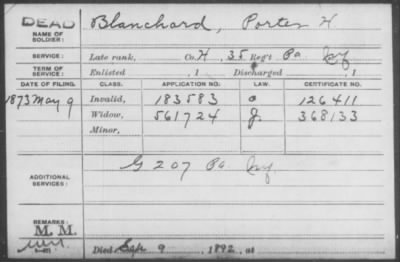 DEAD
NAME OF SOLDIER: Blanchard, Porter H
SERVICE: Late rank, Co. H, 35 Reg't Pa Inf
TERM OF SERVICE: Enlisted , 1 Discharged , 1
DATE OF FILING. CLASS. APPLICATION NO. LAW. CERTIFICATE NO.
1873 May 9 Invalid, 183583 a 126411
Widow, 561724 J. 368133
Minor,
ADDITIONAL SERVICES: G 207 Pa Inf
REMARKS:
M. M.
Died Sep 9, 1892, at